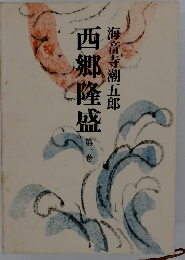 海音寺潮五郎
西郷隆盛
第一巻